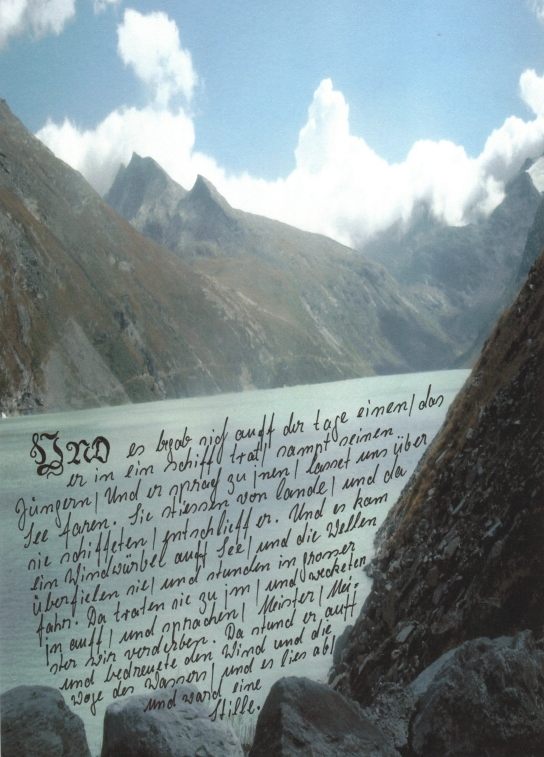 VND es begab sich auff der tage einen / das
er in ein Schiff trat / sampt seinen
Jüngern / Und er sprach zu jnen / Lasset uns über
See faren. Sie stiessen von lande / und da
sie schiffeten / entschlieff er. Und es kam
ein Windwürbel auff See / und die Wellen
überfielen sie / und stunden in grosser
fahr. Da traten sie zu jm / und wecketen
jn auff / und sprachen / Meister / Mei-
ster wir verderben. Da stund er auff
und bedreuete den Wind und die
woge des Wassers / und es lies ab /
und ward eine
Stille.